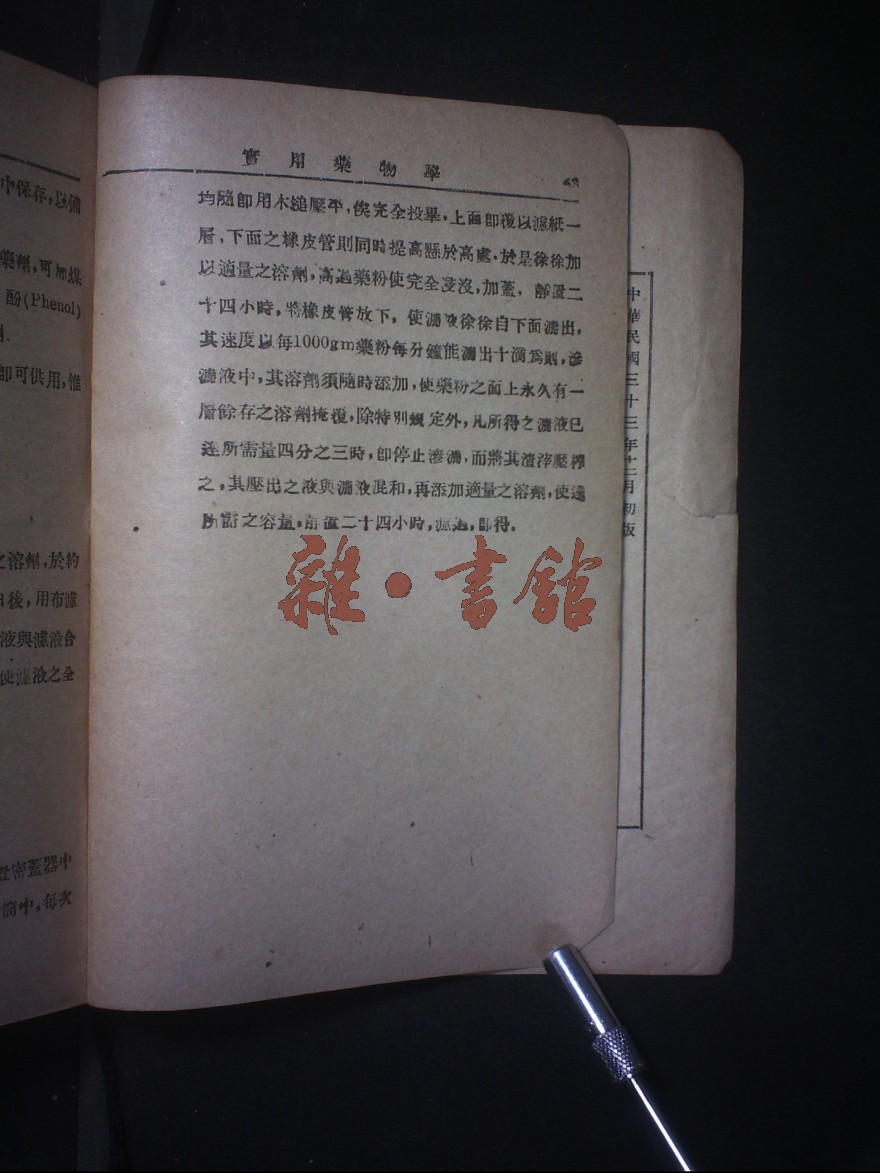 中保存,以備
藥劑,可加煤
酚(Phenol)
即可供用,惟
之溶劑,於約
日後,用布濾
液與濾液合
使濾液之全
置密蓋器中
筒中,每次
實用藥物學
48
均隨即用木槌壓平,俟完全投畢,上面即覆以濾紙一
層,下面之橡皮管則同時提高懸於高處,於是徐徐加
以適量之溶劑,高過藥粉使完全浸沒,加蓋,靜置二
十四小時,將橡皮管放下,使濾液徐徐自下面濾出,
其速度以每1000gm藥粉每分鐘能濾出十滴爲則,滲
濾液中,其溶劑須隨時添加,使藥粉之面上永久有一
層餘存之溶劑掩覆,除特別規定外,凡所得之濾液已
達所需量四分之三時,即停止滲濾,而將其渣滓壓榨
之,其壓出之液與濾液混和,再添加適量之溶劑,使達
所需之容量,靜置二十四小時,濾過,即得.
雜·書館
中華民國三十三年十二月初版